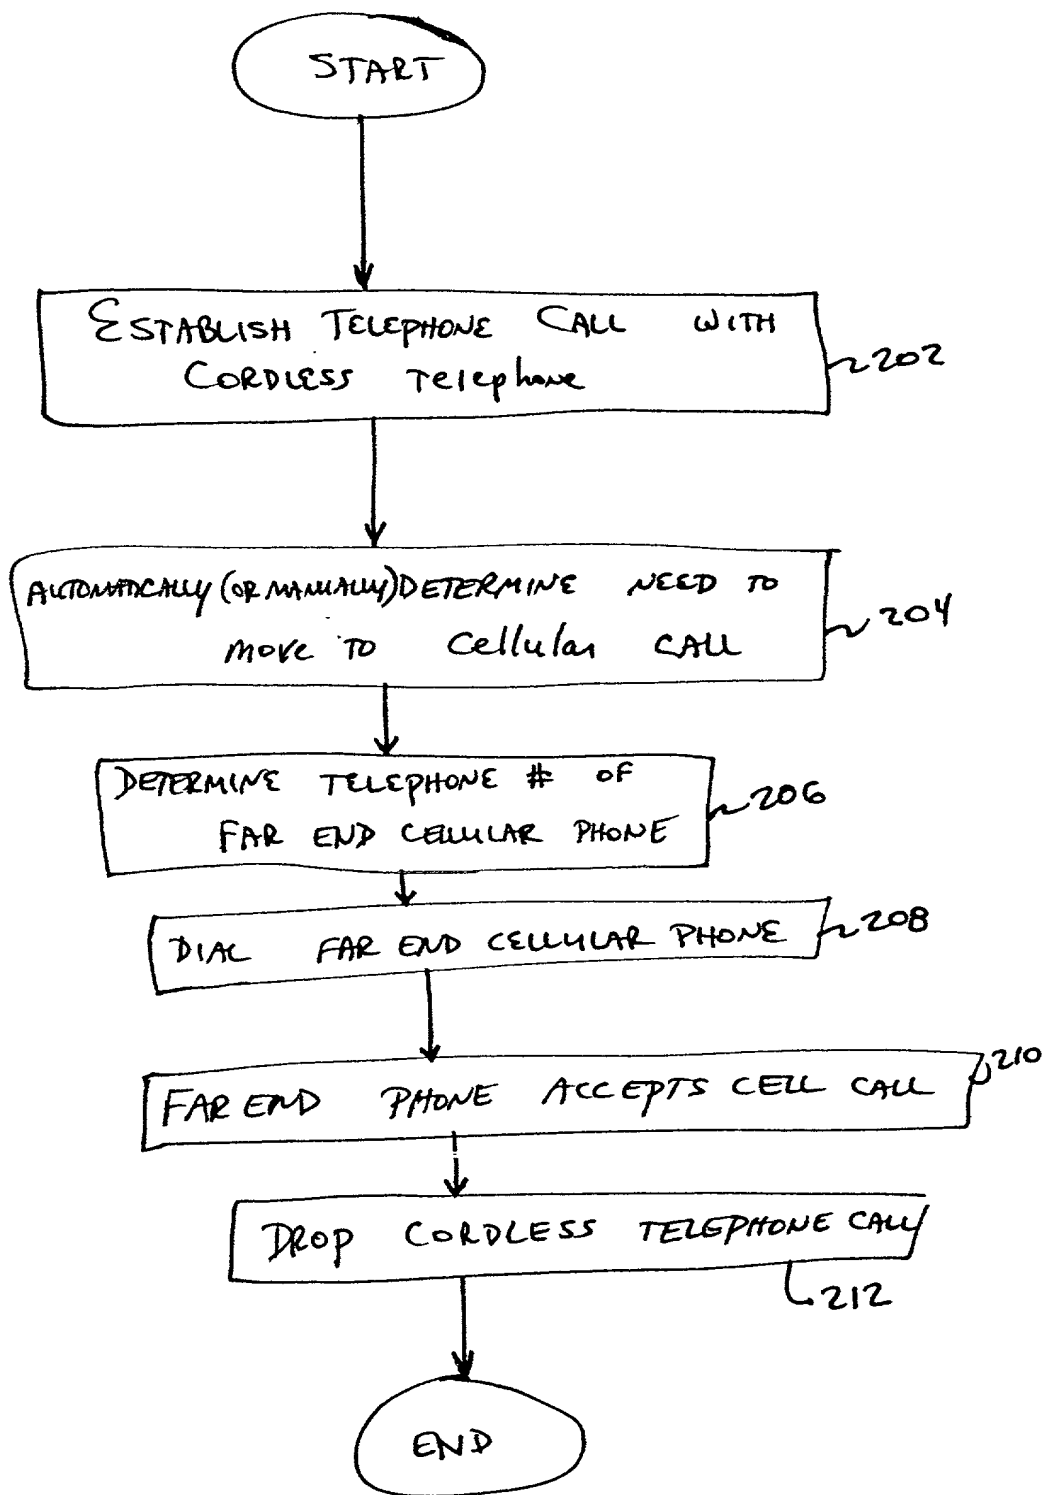 START
ESTABLISH TELEPHONE CALL WITH
CORDLESS Telephone
202
AUTOMATICALLY (OR MANUALLY) DETERMINE NEED TO
move TO Cellular CALL
204
DETERMINE TELEPHONE # OF
FAR END CELLULAR PHONE
206
DIAL FAR END CELLULAR PHONE
208
FAR END PHONE ACCEPTS CELL CALL
210
DROP CORDLESS TELEPHONE CALL
212
END